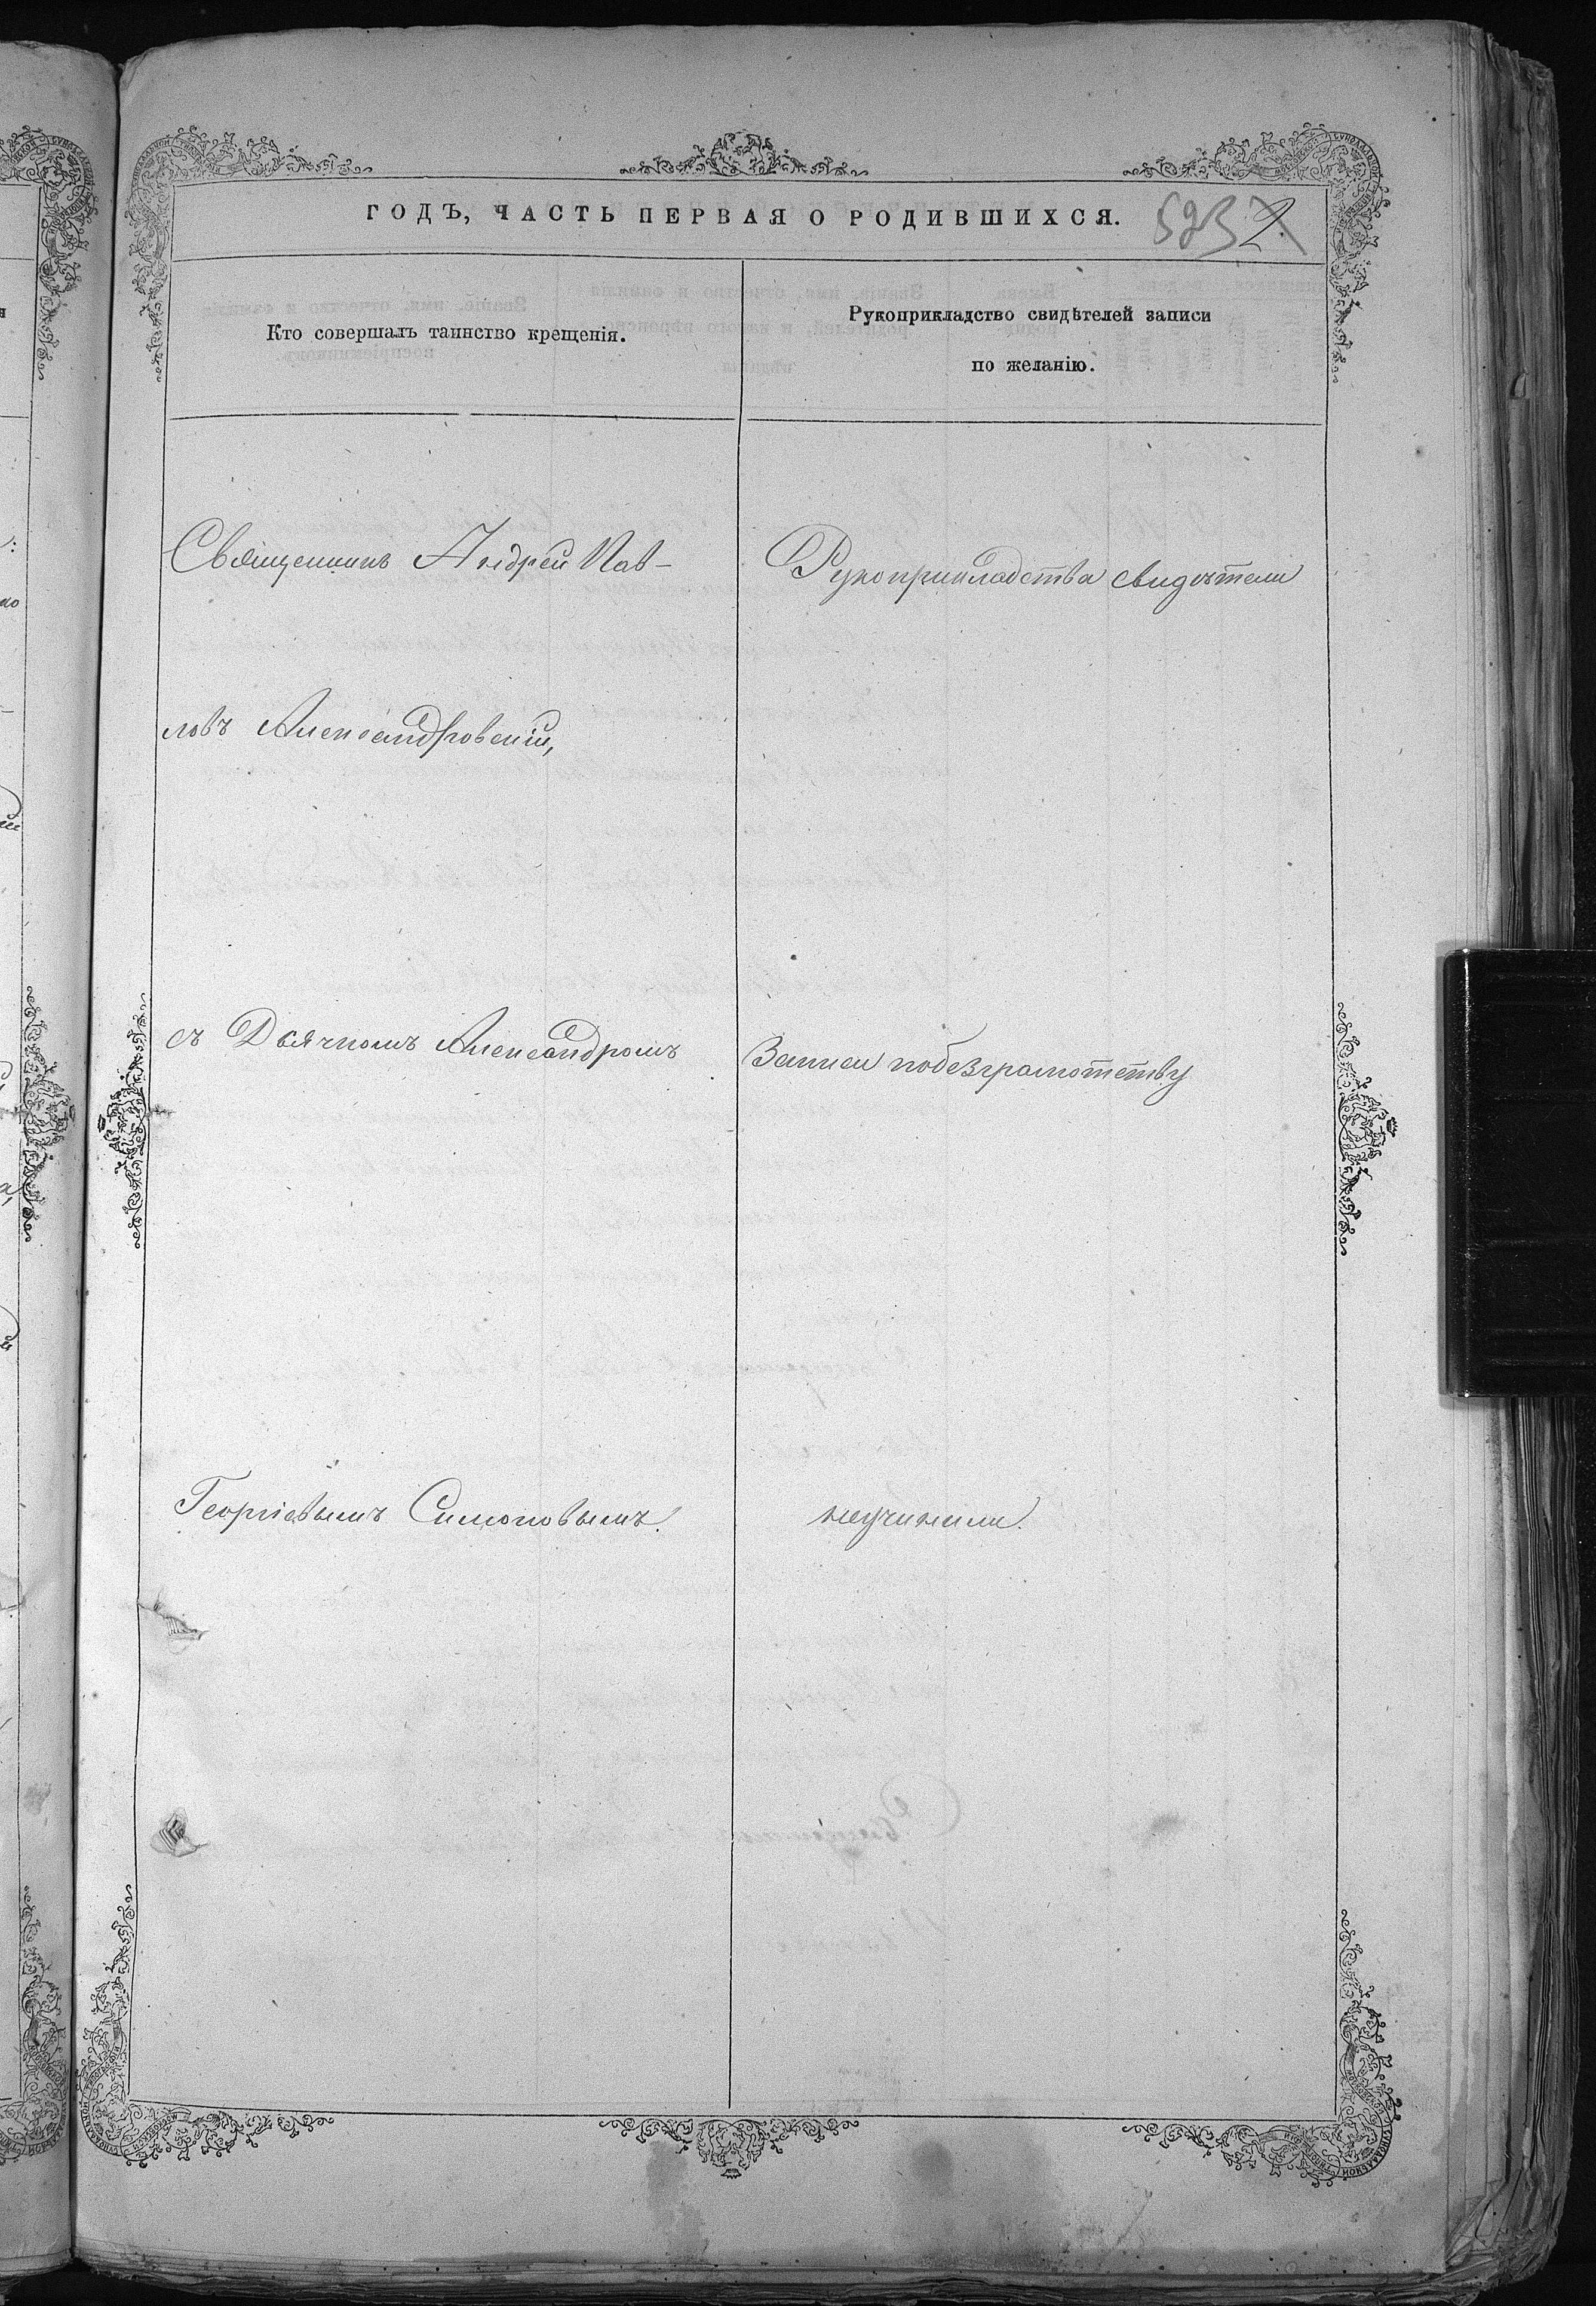 ГОДЪ, ЧАСТЬ ПЕРВАЯ О РОДИВШИХСЯ.
523 2.
Кто совершалъ таинство крещенія.
Рукоприкладство свидѣтелей записи
по желанію.
Священникъ Андрей Пав-
ловъ Александровскій,
съ Дьячкомъ Александромъ
Георгіевымъ Симоновымъ.
Рукоприкладства свидѣтели
Записи побезграмотству
неучинили.